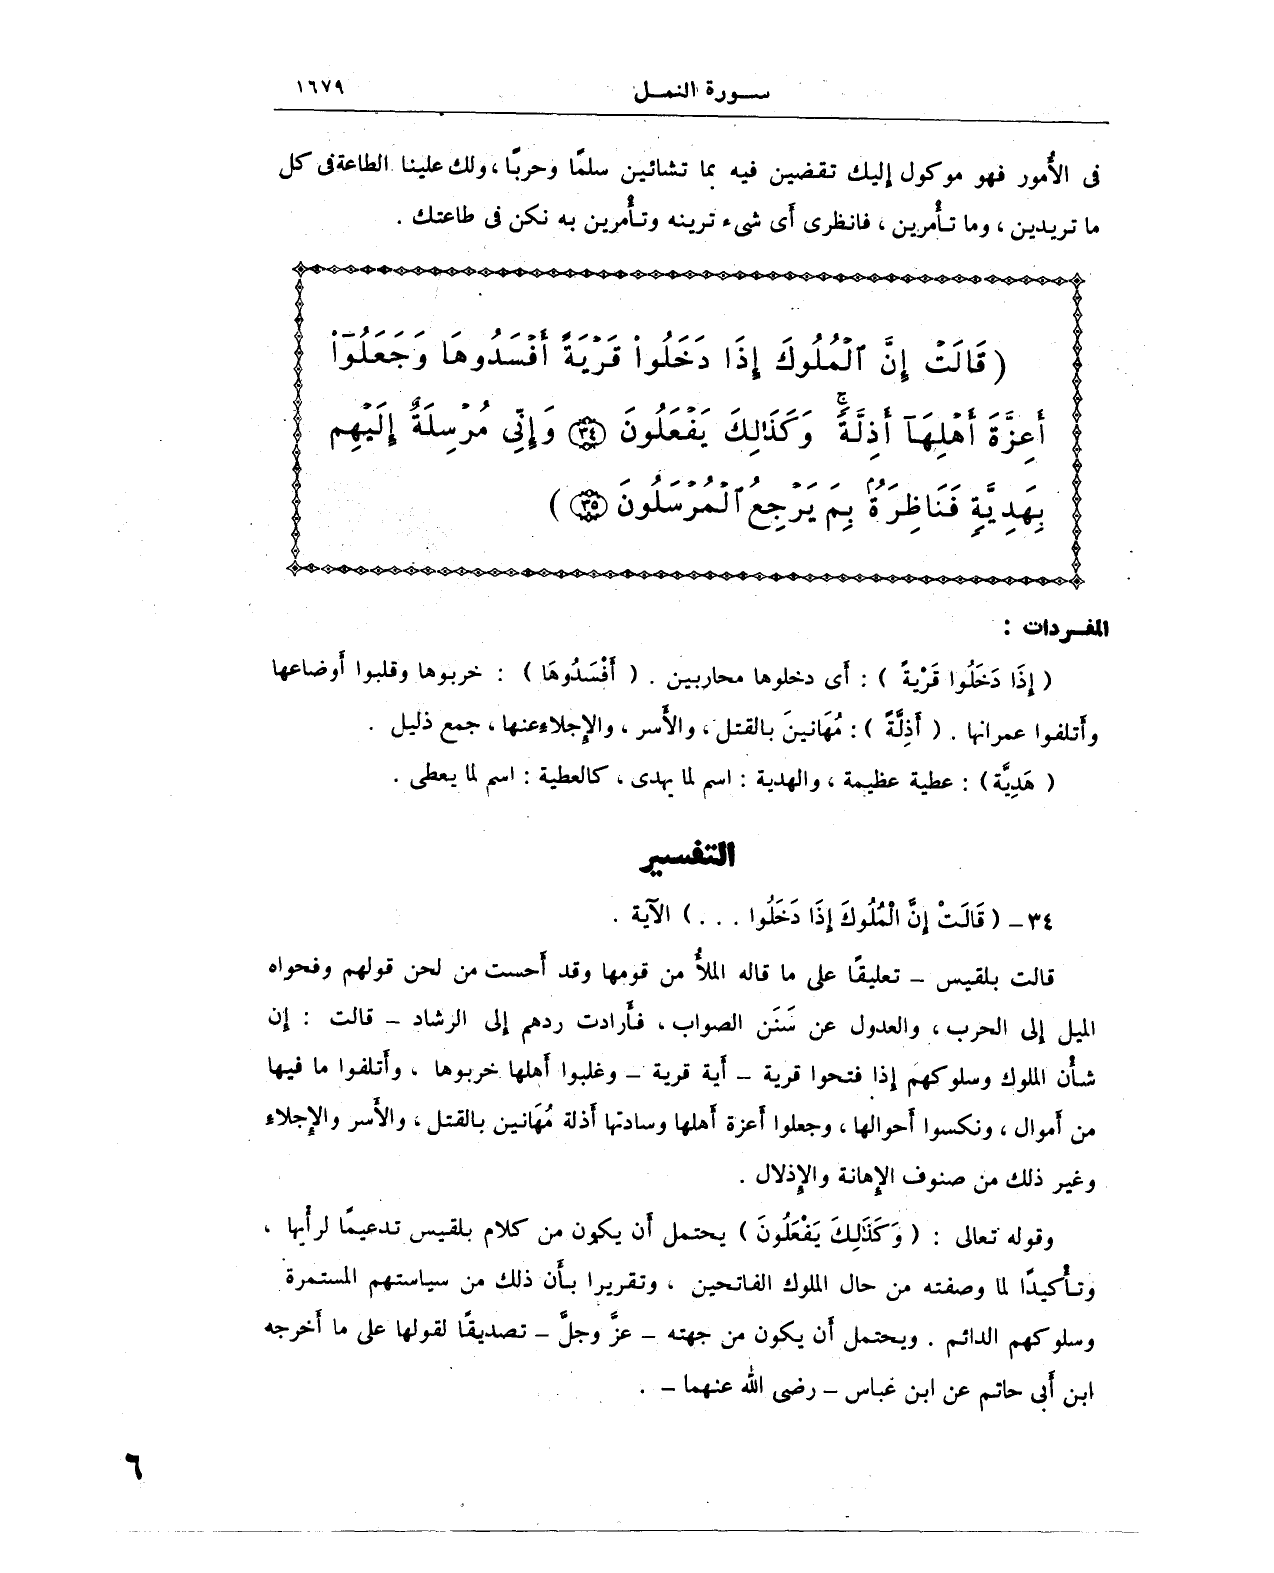 سورة النمل ١٦٧٩
فى الأُمور فهو موكول إليك تقضين فيه بما تشائين سلمًا وحربًا ، ولك علينا الطاعة فى كل
ما تريدين ، وما تأْمرين ، فانظرى أَى شىء ترينه وتأْمرين به نكن فى طاعتك .
( قَالَتْ إِنَّ ٱلْمُلُوكَ إِذَا دَخَلُوا۟ قَرْيَةً أَفْسَدُوهَا وَجَعَلُوٓا۟
أَعِزَّةَ أَهْلِهَآ أَذِلَّةً ۖ وَكَذَٰلِكَ يَفْعَلُونَ ﴿٣٤﴾ وَإِنِّى مُرْسِلَةٌ إِلَيْهِم
بِهَدِيَّةٍ فَنَاظِرَةٌۢ بِمَ يَرْجِعُ ٱلْمُرْسَلُونَ ﴿٣٥﴾ )
المفـردات :
( إِذَا دَخَلُوا قَرْيَةً ) : أَى دخلوها محاربين . ( أَفْسَدُوهَا ) : خربوها وقلبوا أَوضاعها
وأَتلفوا عمرانها . ( أَذِلَّةً ) : مُهَانينَ بالقتل ، والأَسر ، والإِجلاء عنها ، جمع ذليل .
( هَدِيَّة ) : عطية عظيمة ، والهدية : اسم لما يهدى ، كالعطية : اسم لما يعطى .
التفسير
٣٤ – ( قَالَتْ إِنَّ الْمُلُوكَ إِذَا دَخَلُوا . . . ) الآية .
قالت بلقيس – تعليقًا على ما قاله الملأُ من قومها وقد أَحست من لحن قولهم وفحواه
الميل إلى الحرب ، والعدول عن سَنَن الصواب ، فأَرادت ردهم إلى الرشاد – قالت : إن
شأْن الملوك وسلوكهم إذا فتحوا قرية – أَية قرية – وغلبوا أَهلها خربوها ، وأَتلفوا ما فيها
من أَموال ، ونكسوا أَحوالها ، وجعلوا أَعزة أَهلها وسادتها أَذلة مُهَانين بالقتل ، والأَسر والإِجلاء
وغير ذلك من صنوف الإِهانة والإِذلال .
وقوله تعالى : ( وَكَذَٰلِكَ يَفْعَلُونَ ) يحتمل أَن يكون من كلام بلقيس تدعيمًا لرأْيها ،
وتأْكيدًا لما وصفته من حال الملوك الفاتحين ، وتقريرا بأَن ذلك من سياستهم المستمرة
وسلوكهم الدائم . ويحتمل أَن يكون من جهته – عزَّ وجلَّ – تصديقًا لقولها على ما أَخرجه
ابن أَبى حاتم عن ابن عباس – رضى الله عنهما – .
٦